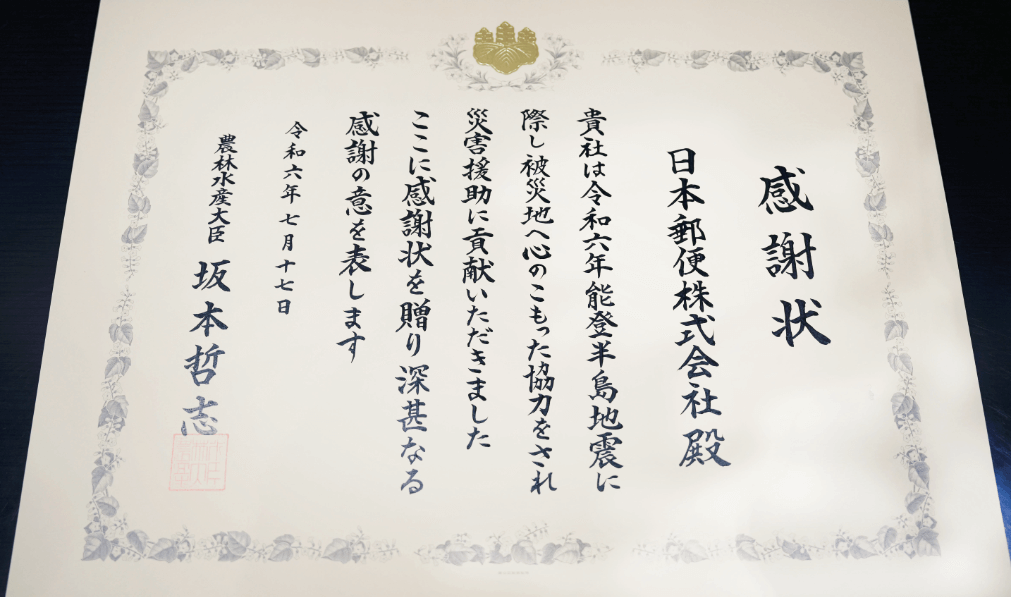 感謝状
日本郵便株式会社 殿
貴社は令和六年能登半島地震に
際し被災地へ心のこもった協力をされ
災害援助に貢献いただきました
ここに感謝状を贈り深甚なる
感謝の意を表します
令和六年七月十七日
農林水産大臣 坂本哲志